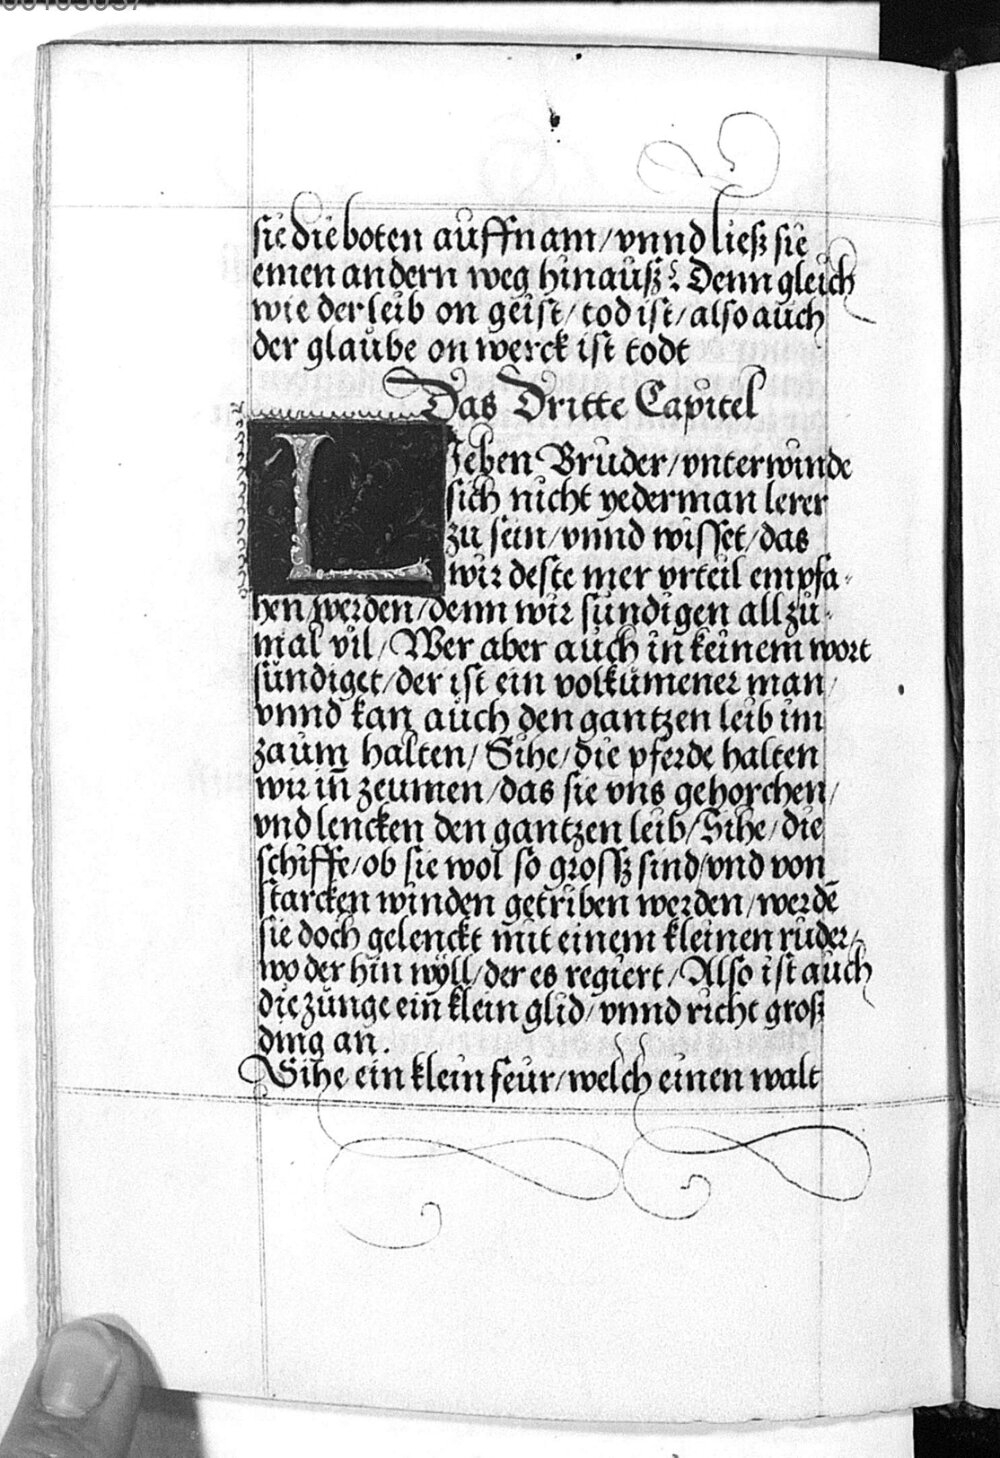 sie die boten auffnam/vnnd ließ sie
einen andern weg hinauß? Denn gleich
wie der leib on geist/tod ist/also auch
der glaube on werck ist todt
Das Dritte Capitel
LJeben Brüder/vnterwinde
sich nicht yederman lerer
zu sein/vnnd wisset/das
wir deste mer vrteil empfa-
hen werden/denn wir sündigen allzu-
mal vil/Wer aber auch in keinem wort
sündiget/der ist ein volkümener man/
vnnd kan auch den gantzen leib im
zaum halten/Sihe/die pferde halten
wir in̄ zeumen/das sie vns gehorchen/
vnd lencken den gantzen leib/Sihe/die
schiffe/ob sie wol so grossz sind/vnd von
starcken winden getriben werden/werdē
sie doch gelenckt mit einem kleinen ruder/
wo der hin wyll/der es regiert/Also ist auch
die zunge ein̄ klein glid/vnnd richt groß
ding an.
Sihe ein klein feur/welch einen walt